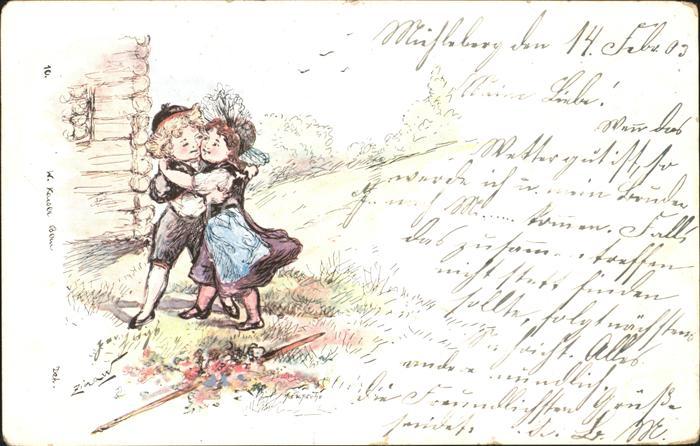 Mühleberg den 14. Febr. 03
Meine Liebe!
Wenn das
Wetter gut ist, so
werde ich u. mein Bruder
nach M...... kommen. Falls
das zusammentreffen
nicht statt finden
sollte, folgt nächstens
Bericht. Alles
andere mündlich
die Freundlichsten Grüße
sendet
10.